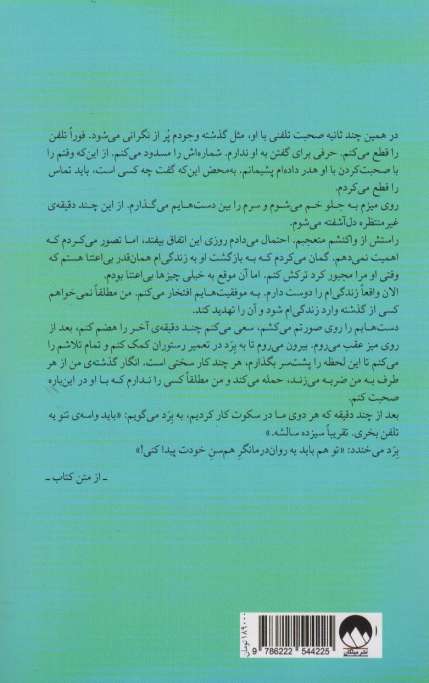 در همین چند ثانیه صحبت تلفنی با او، مثل گذشته وجودم پُر از نگرانی می‌شود. فوراً تلفن
را قطع می‌کنم. حرفی برای گفتن به او ندارم. شماره‌اش را مسدود می‌کنم. از این‌که وقتم را
با صحبت‌کردن با او هدر داده‌ام پشیمانم. به‌محض این‌که گفت چه کسی است، باید تماس
را قطع می‌کردم.
روی میزم به جلو خم می‌شوم و سرم را بین دست‌هایم می‌گذارم. از این چند دقیقه‌ی
غیرمنتظره دل‌آشفته می‌شوم.
راستش از واکنشم متعجبم. احتمال می‌دادم روزی این اتفاق بیفتد، اما تصور می‌کردم که
اهمیت نمی‌دهم. گمان می‌کردم که به بازگشت او به زندگی‌ام همان‌قدر بی‌اعتنا هستم که
وقتی او مرا مجبور کرد ترکش کنم. اما آن موقع به خیلی چیزها بی‌اعتنا بودم.
الان واقعاً زندگی‌ام را دوست دارم. به موفقیت‌هایم افتخار می‌کنم. من مطلقاً نمی‌خواهم
کسی از گذشته وارد زندگی‌ام شود و آن را تهدید کند.
دست‌هایم را روی صورتم می‌کشم، سعی می‌کنم چند دقیقه‌ی آخر را هضم کنم، بعد از
روی میز عقب می‌روم. بیرون می‌روم تا به بِرَد در تعمیر رستوران کمک کنم و تمام تلاشم را
می‌کنم تا این لحظه را پشت‌سر بگذارم، هر چند کار سختی است. انگار گذشته‌ی من از هر
طرف به من ضربه می‌زند، حمله می‌کند و من مطلقاً کسی را ندارم که با او در این‌باره
صحبت کنم.
بعد از چند دقیقه که هر دوی ما در سکوت کار کردیم، به بِرَد می‌گویم: «باید واسه‌ی تئو یه
تلفن بخری. تقریباً سیزده سالشه.»
بِرَد می‌خندد: «تو هم باید یه روان‌درمانگرِ هم‌سنِ خودت پیدا کنی!»
ـ از متن کتاب ـ
۱۸۹۰۰۰ تومان
9 786222 544225
نشر میلکان